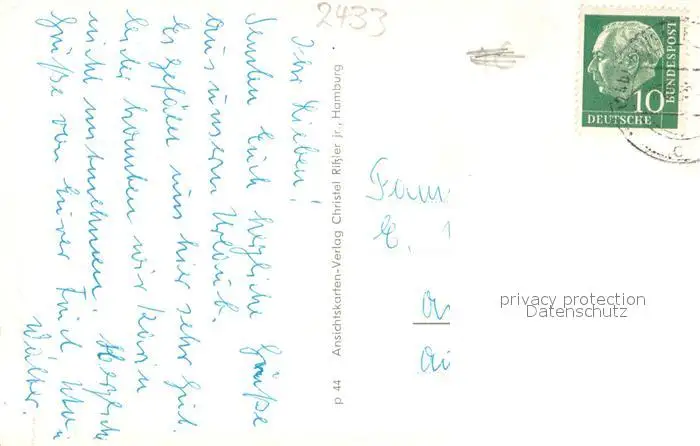 2433
Ihr Lieben!
Senden Euch herzliche Grüße
aus unserm Urlaub.
Es gefällt uns hier sehr gut.
Leider konnten wir Karin
nicht mitnehmen. Herzliche
Grüße von Eurer
Walter.
p 44 Ansichtskarten-Verlag Christel Rißler jr., Hamburg
10
DEUTSCHE
BUNDESPOST
Fam
E.
privacy protection
Datenschutz